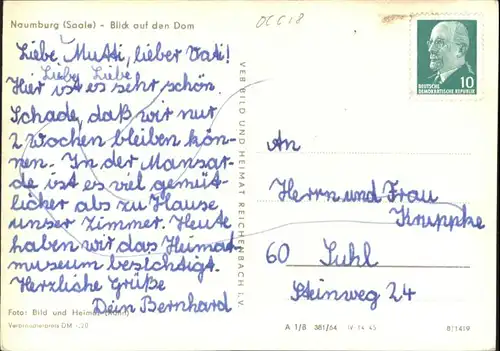 Naumburg (Saale) - Blick auf den Dom
OCC 18
Liebe Mutti, lieber Vati!
Lieby Liebe
Hier ist es sehr schön.
Schade, daß wir nur
2 Wochen bleiben kön-
nen. In der Mansar-
de ist es viel gemüt-
licher als zu Hause
unser Zimmer. Heute
haben wir das Heimat
museum besichtigt.
Herzliche Grüße
Dein Bernhard
Foto: Bild und Heimat
Verbraucherpreis DM -,20
VEB BILD UND HEIMAT REICHENBACH i. V.
10
DEUTSCHE
DEMOKRATISCHE REPUBLIK
An
Herrn und Frau
Kruppke
60 Suhl
Steinweg 24
A 1/B 381/64 IV-14-45 8/1419